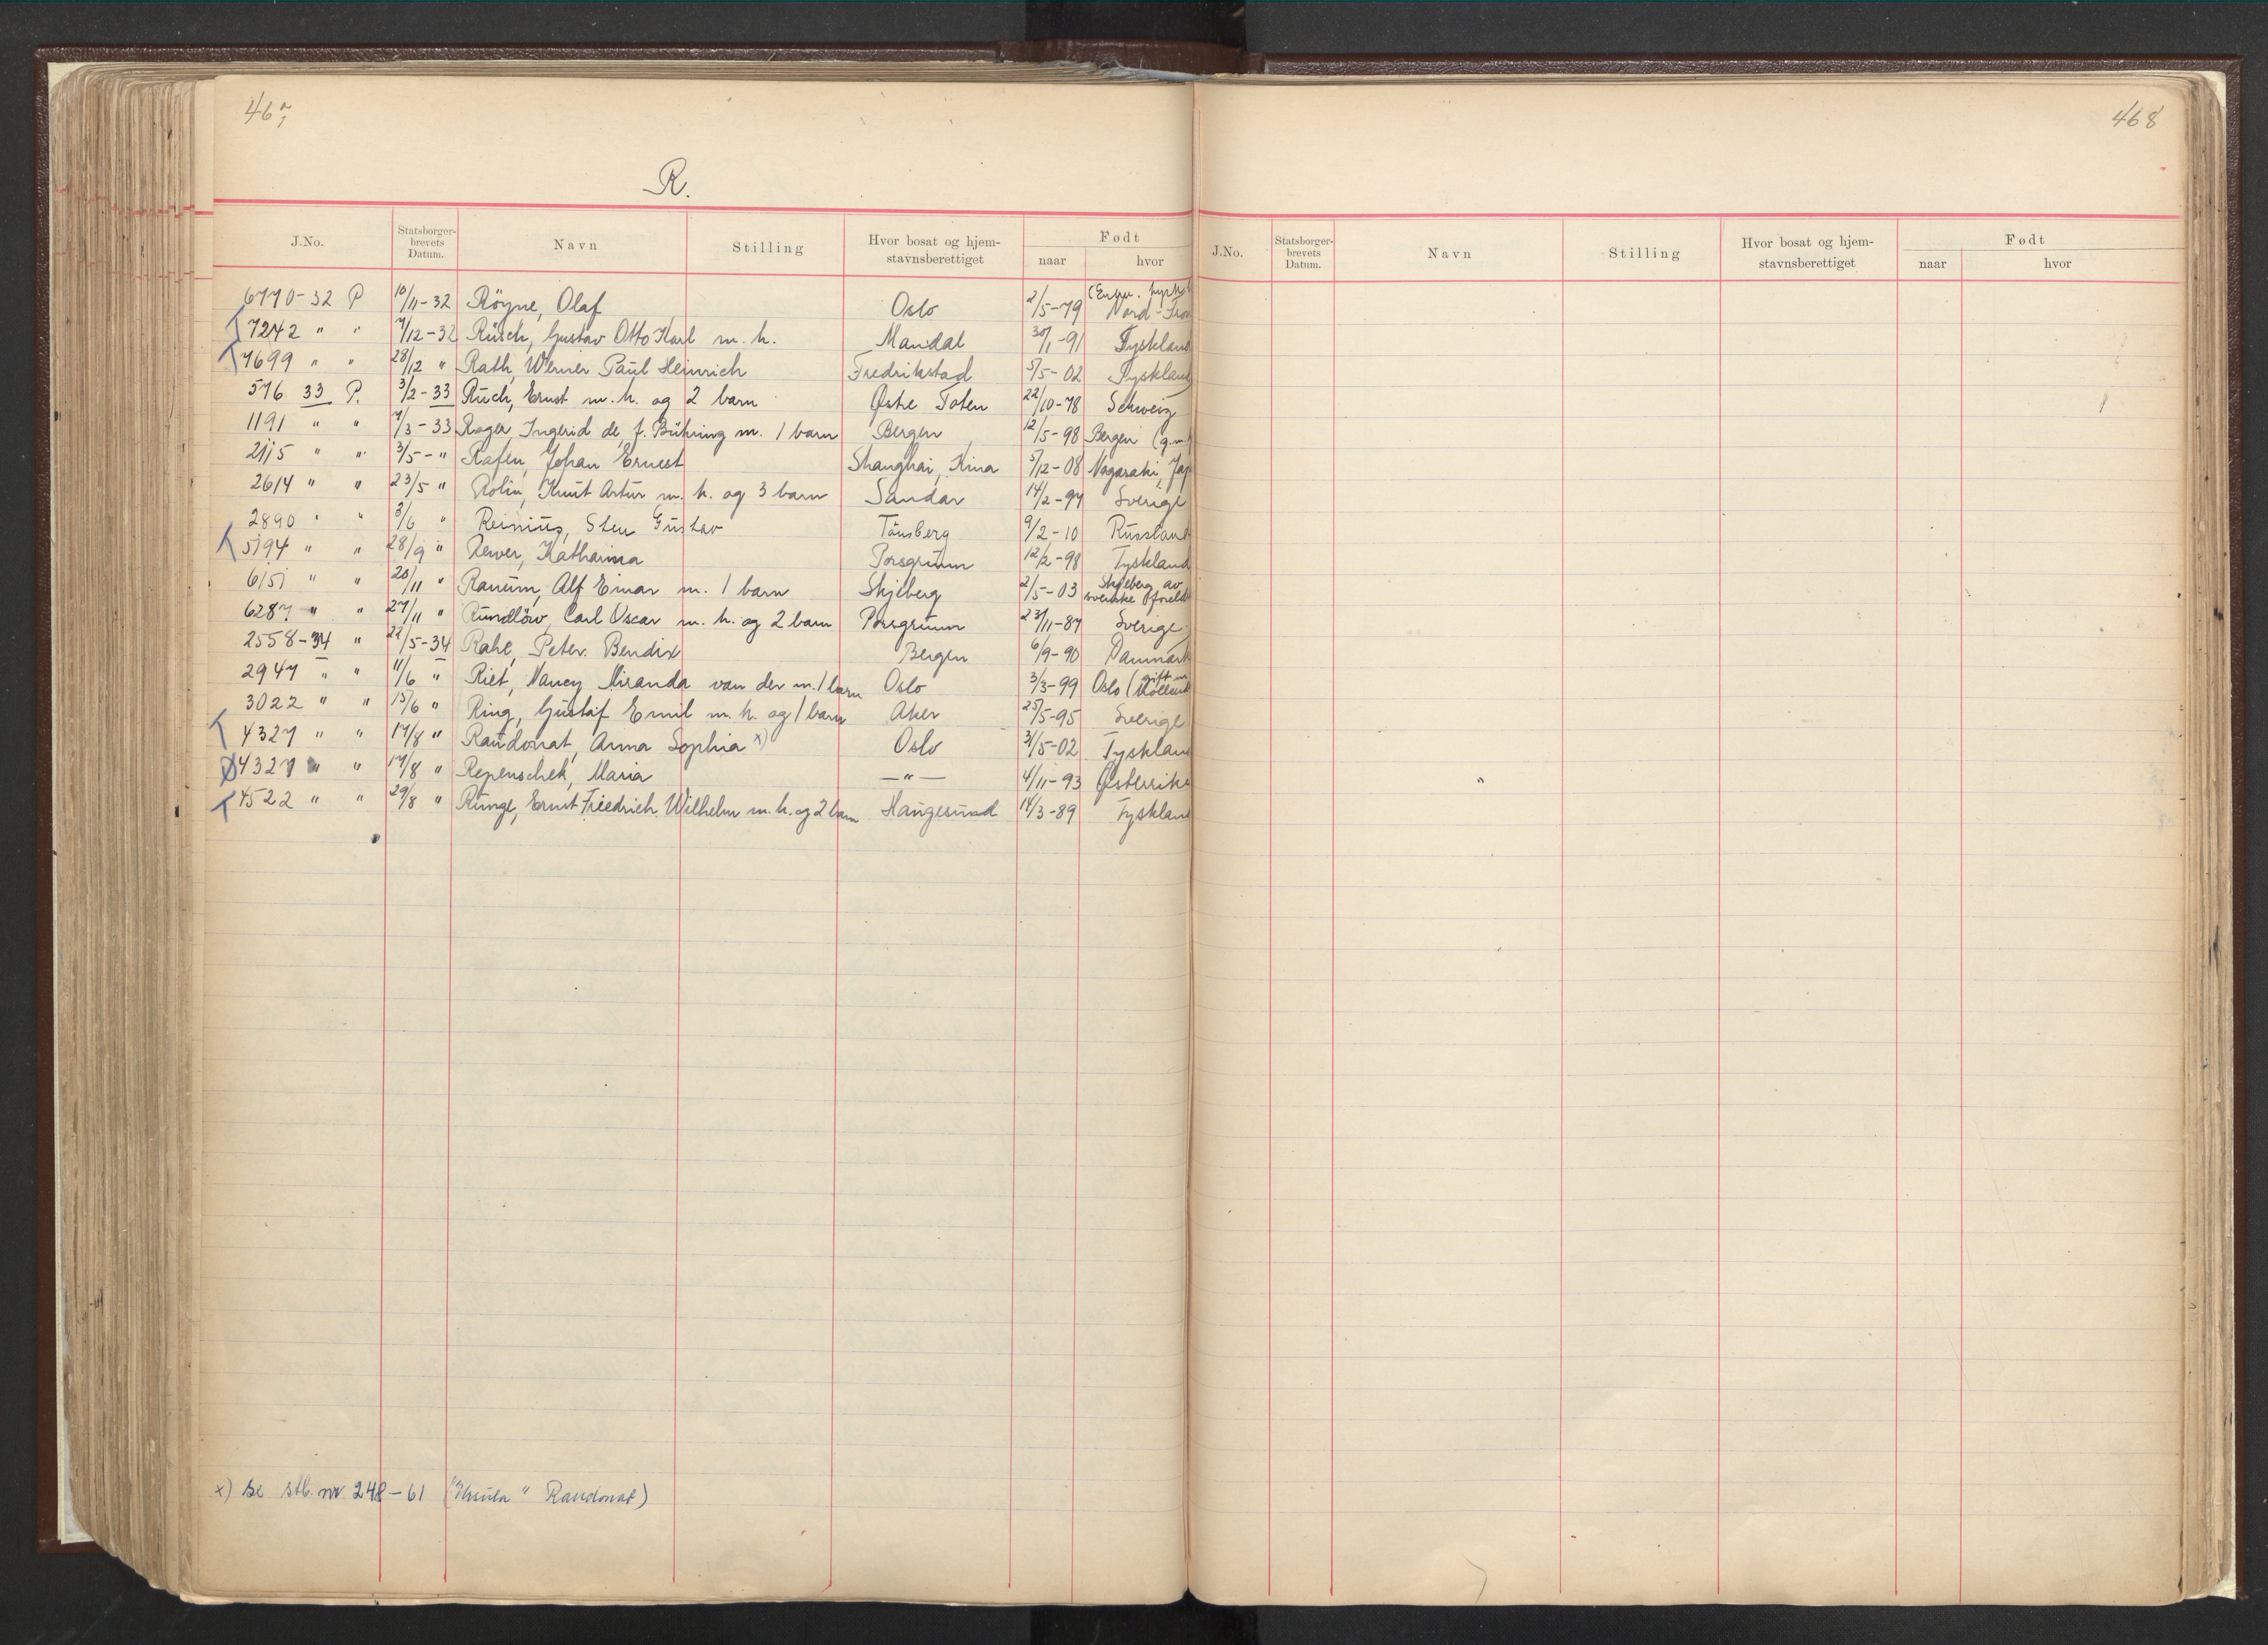 467
R.
J.No. Statsborger-brevets Datum. Navn Stilling Hvor bosat og hjem-stavnsberettiget Født naar hvor
6770-32 P 10/11-32 Röyne, Olaf Oslo 2/5-79 Nord-Fron
7242 " " 7/12-32 Rüsch, Gustav Otto Karl m. h. Mandal 30/1-91 Tyskland
7699 " " 28/12 " Rath, Werner Paul Heinrich Fredrikstad 5/5-02 Tyskland
576 33 P. 3/2-33 Ruch, Ernst m. h. og 2 barn Østre Toten 22/10-78 Schweiz
1191 " " 7/3-33 Roger Ingerid de, f. Bühring m. 1 barn Bergen 12/5-98 Bergen (g.m.
2115 " " 3/5-" Rafen, Johan Ernest Shanghai, Kina 5/12-08 Nagasaki, Jap
2614 " " 23/5 " Rolin, Knut Artur m. h. og 3 barn Sandar 14/2-97 Sverige
2890 " " 3/6 " Reinius, Sten Gustav Tønsberg 9/2-10 Russland
5194 " " 28/9 " Rewer, Katharina Porsgrunn 12/2-98 Tyskland
6151 " " 20/11 " Raneum, Alf Einar m. 1 barn Skjeberg 2/5-03 Skjeberg av svenske foreld
6287 " " 27/11 " Rundlöw, Carl Oscar m. h. og 2 barn Porsgrunn 23/11-87 Sverige
2558-34 " 22/5-34 Rahe, Peter Bendix Bergen 6/9-90 Danmark
2947 " " 11/6 " Riet, Nancy Miranda van der m. 1 barn Oslo 3/3-99 Oslo (gift m Holland
3022 " " 15/6 " Ring, Gustaf Emil m. h. og 1 barn Aker 25/5-95 Sverige
4327 " " 17/8 " Raudonat, Anna Sophia x) Oslo 31/5-02 Tyskland
4327 " " 17/8 " Repenschek, Maria — " — 4/11-93 Østerrike
4522 " " 29/8 " Runge, Ernst Friedrich Wilhelm m. h. og 2 barn Haugesund 14/3-89 Tyskland
x) se stb. nr. 248-61 ( " Raudonat)
468
J.No. Statsborger-brevets Datum. Navn Stilling Hvor bosat og hjem-stavnsberettiget Født naar hvor